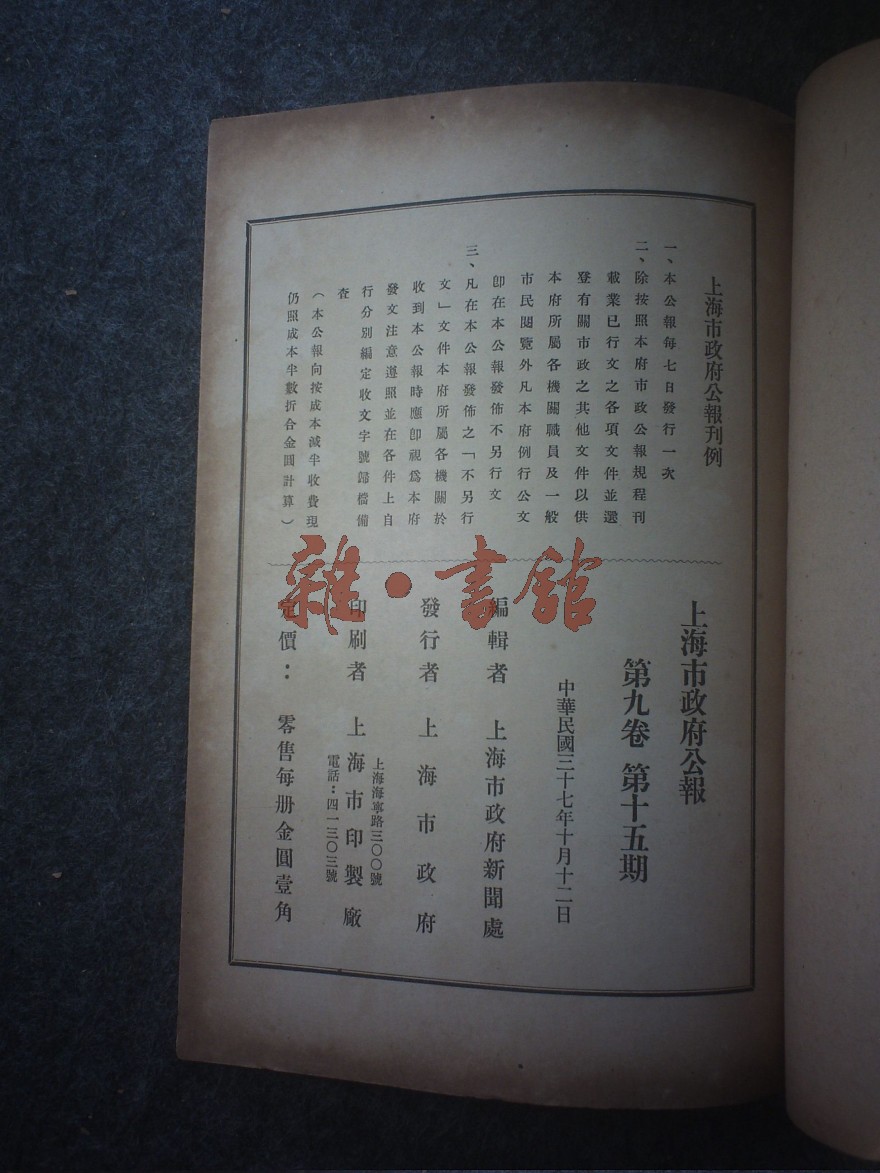 上海市政府公報刊例
一、本公報每七日發行一次
二、除按照本府市政公報規程刊
載業已行文之各項文件並選
登有關市政之其他文件以供
本府所屬各機關職員及一般
市民閱覽外凡本府例行公文
卽在本公報發佈不另行文
三、凡在本公報發佈之「不另行
文」文件本府所屬各機關於
收到本公報時應卽視爲本府
發文注意遵照並在各件上自
行分別編定收文字號歸檔備
查
（本公報向按成本減半收費現
仍照成本半數折合金圓計算）
上海市政府公報
第九卷 第十五期
中華民國三十七年十月十二日
編輯者 上海市政府新聞處
發行者 上海市政府
印刷者 上海市印製廠
上海海寧路三〇〇號
電話：四一三〇三號
定價： 零售每册金圓壹角
雜·書館